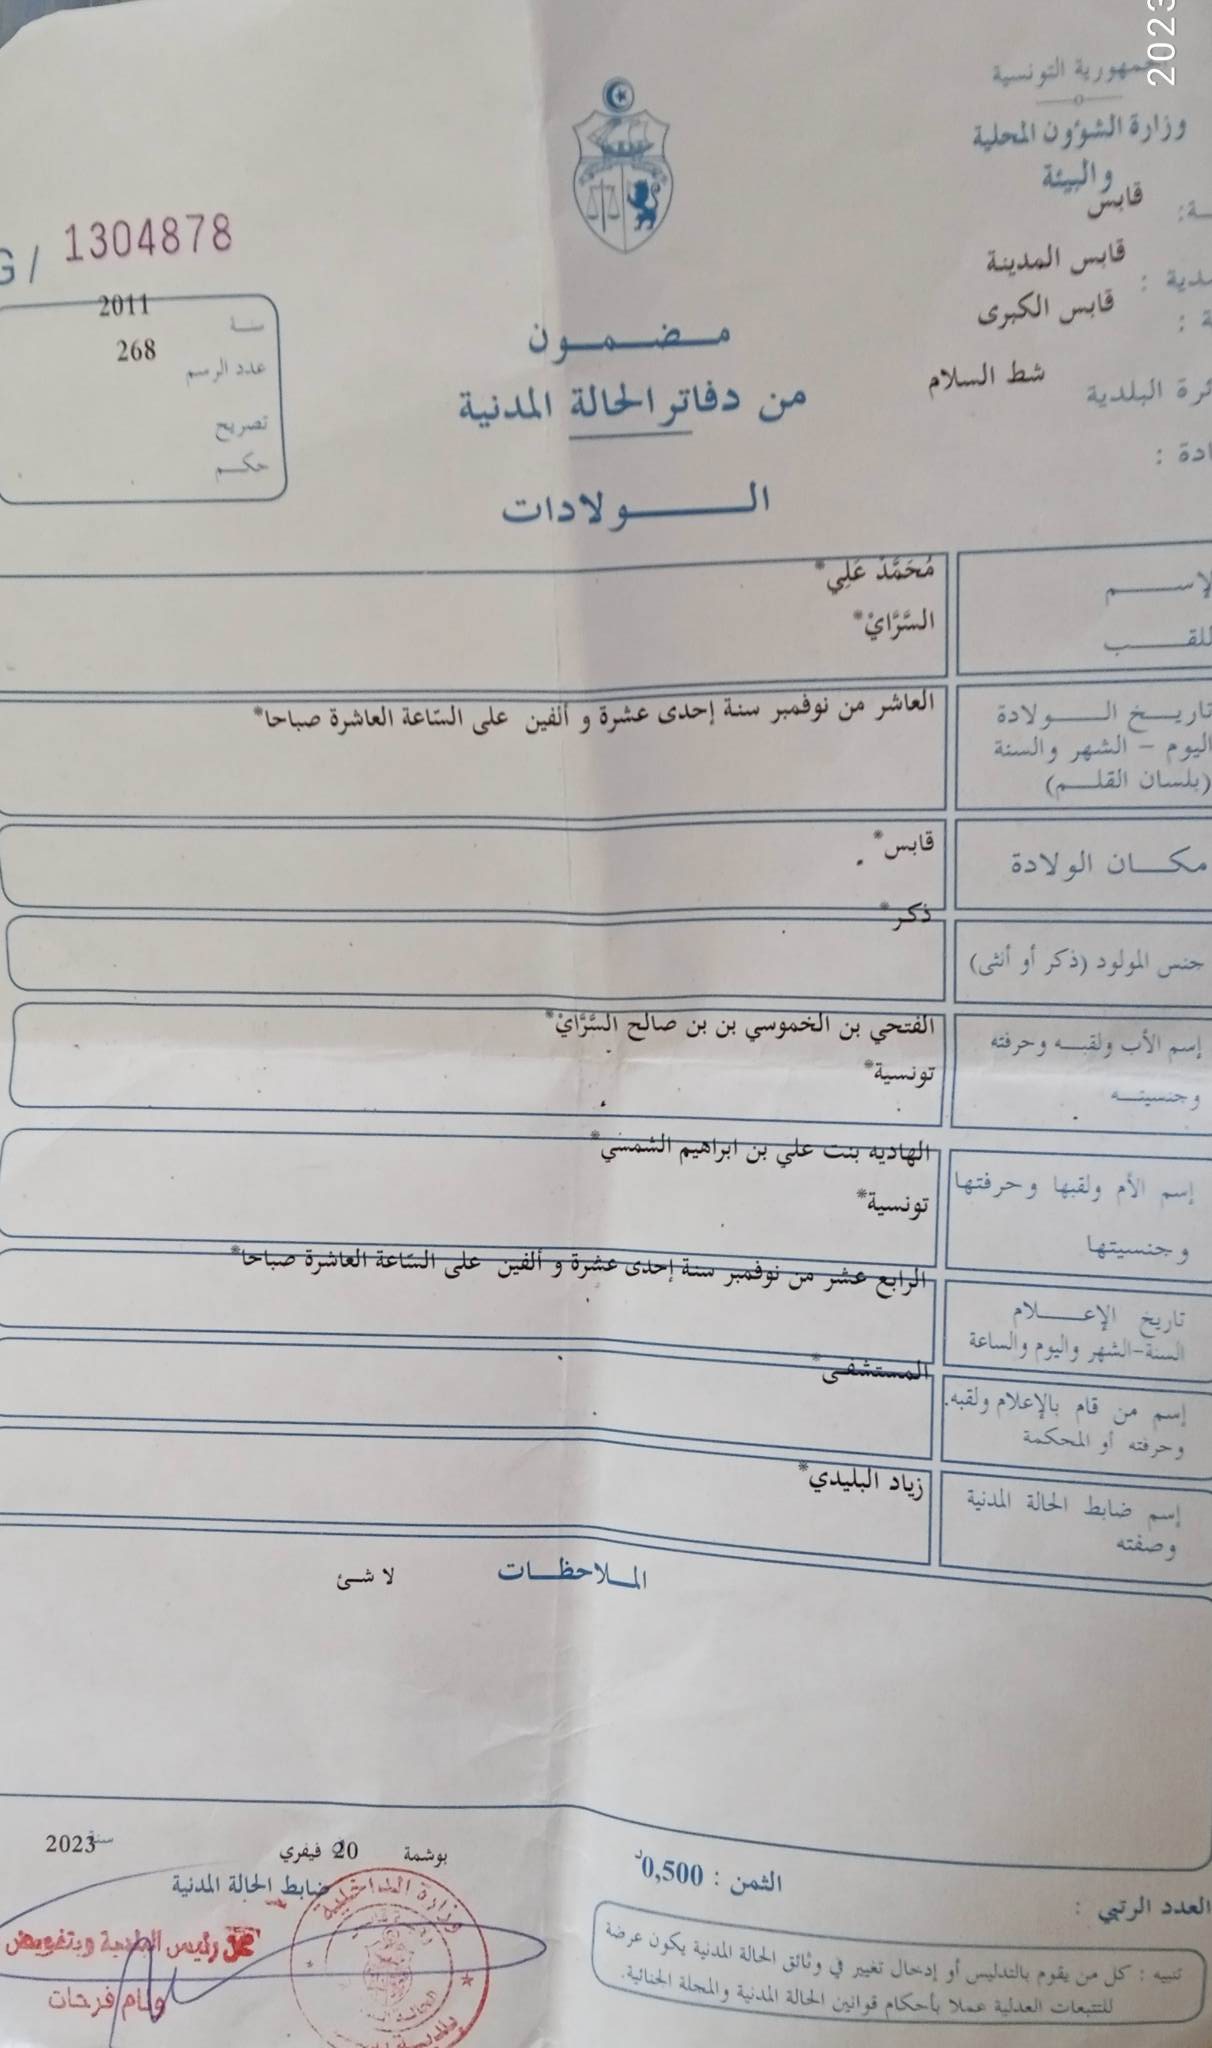 2023
الجمهورية التونسية
وزارة الشؤون المحلية
والبيئة
قابس
قابس المدينة
قابس الكبرى
البلدية شط السلام
G / 1304878
سنة 2011
عدد الرسم 268
تصريح
حكم
مضمون
من دفاتر الحالة المدنية
الولادات
الإسم مُحَمَّدْ عَلِي*
اللقب السَّرَّايْ*
تاريخ الولادة العاشر من نوفمبر سنة إحدى عشرة و ألفين على السّاعة العاشرة صباحا*
اليوم - الشهر والسنة
(بلسان القلم)
مكان الولادة قابس*
ذكر*
جنس المولود (ذكر أو أنثى)
إسم الأب ولقبه وحرفته الفتحي بن الخموسي بن بن صالح السَّرَّايْ*
وجنسيته تونسية*
الهاديه بنت علي بن ابراهيم الشمسي*
إسم الأم ولقبها وحرفتها تونسية*
وجنسيتها
الرابع عشر من نوفمبر سنة إحدى عشرة و ألفين على السّاعة العاشرة صباحا*
تاريخ الإعلام
السنة-الشهر واليوم والساعة
المستشفى*
إسم من قام بالإعلام ولقبه.
وحرفته أو المحكمة
زياد البليدي*
إسم ضابط الحالة المدنية
وصفته
الملاحظات لا شئ
بوشمة 20 فيفري سنة 2023
ضابط الحالة المدنية
رئيس وبتفويض
فرحات
وزارة الداخلية
الثمن : 0,500د
العدد الرتبي :
تنبيه : كل من يقوم بالتدليس أو إدخال تغيير في وثائق الحالة المدنية يكون عرضة
للتتبعات العدلية عملا بأحكام قوانين الحالة المدنية والمجلة الجنائية.